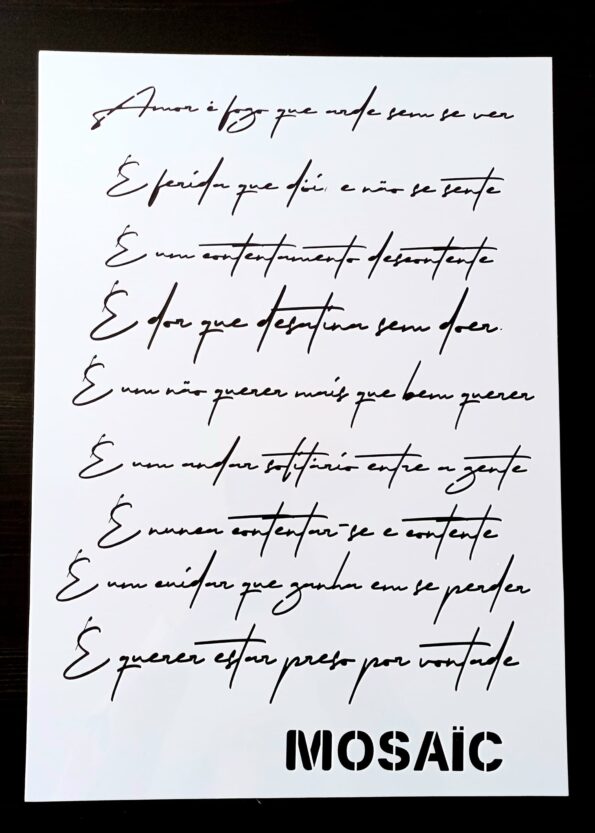 Amor é fogo que arde sem se ver
É ferida que dói, e não se sente
É um contentamento descontente
É dor que desatina sem doer.
É um não querer mais que bem querer
É um andar solitário entre a gente
É nunca contentar-se e contente
É um cuidar que ganha em se perder
É querer estar preso por vontade
MOSAÏC